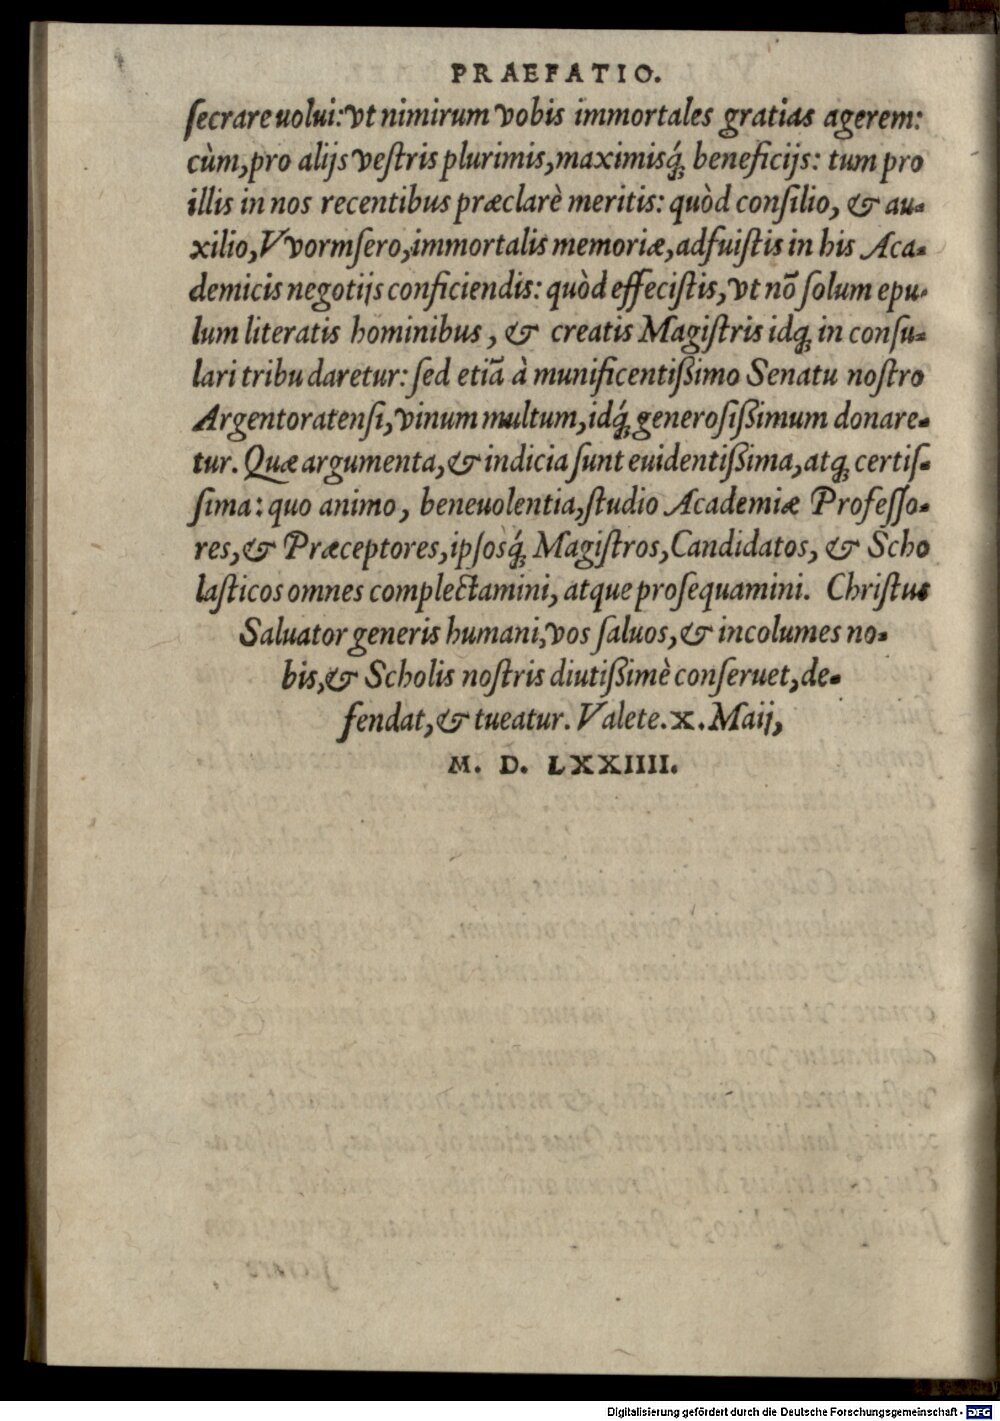 PRAEFATIO.
ſecrare uolui: vt nimirum vobis immortales gratias agerem:
cùm, pro alijs veſtris plurimis, maximisq́ꝫ beneficijs: tum pro
illis in nos recentibus præclarè meritis: quòd conſilio, & au-
xilio, Vvormſero, immortalis memoriæ, adfuiſtis in his Aca-
demicis negotijs conficiendis: quòd effeciſtis, vt nō ſolum epu-
lum literatis hominibus, & creatis Magiſtris idqꝫ in conſu-
lari tribu daretur: ſed etiā à munificentißimo Senatu noſtro
Argentoratenſi, vinum multum, idq́ꝫ generoſißimum donare-
tur. Quæ argumenta, & indicia ſunt euidentißima, atqꝫ certiſ-
ſima: quo animo, beneuolentia, ſtudio Academiæ Profeſſo-
res, & Præceptores, ipſosq́ꝫ Magiſtros, Candidatos, & Scho
laſticos omnes complectamini, atque proſequamini. Chriſtus
Saluator generis humani, vos ſaluos, & incolumes no-
bis, & Scholis noſtris diutißimè conſeruet, de-
fendat, & tueatur. Valete. x. Maij,
M. D. LXXIIII.
Digitalisierung gefördert durch die Deutsche Forschungsgemeinschaft - DFG